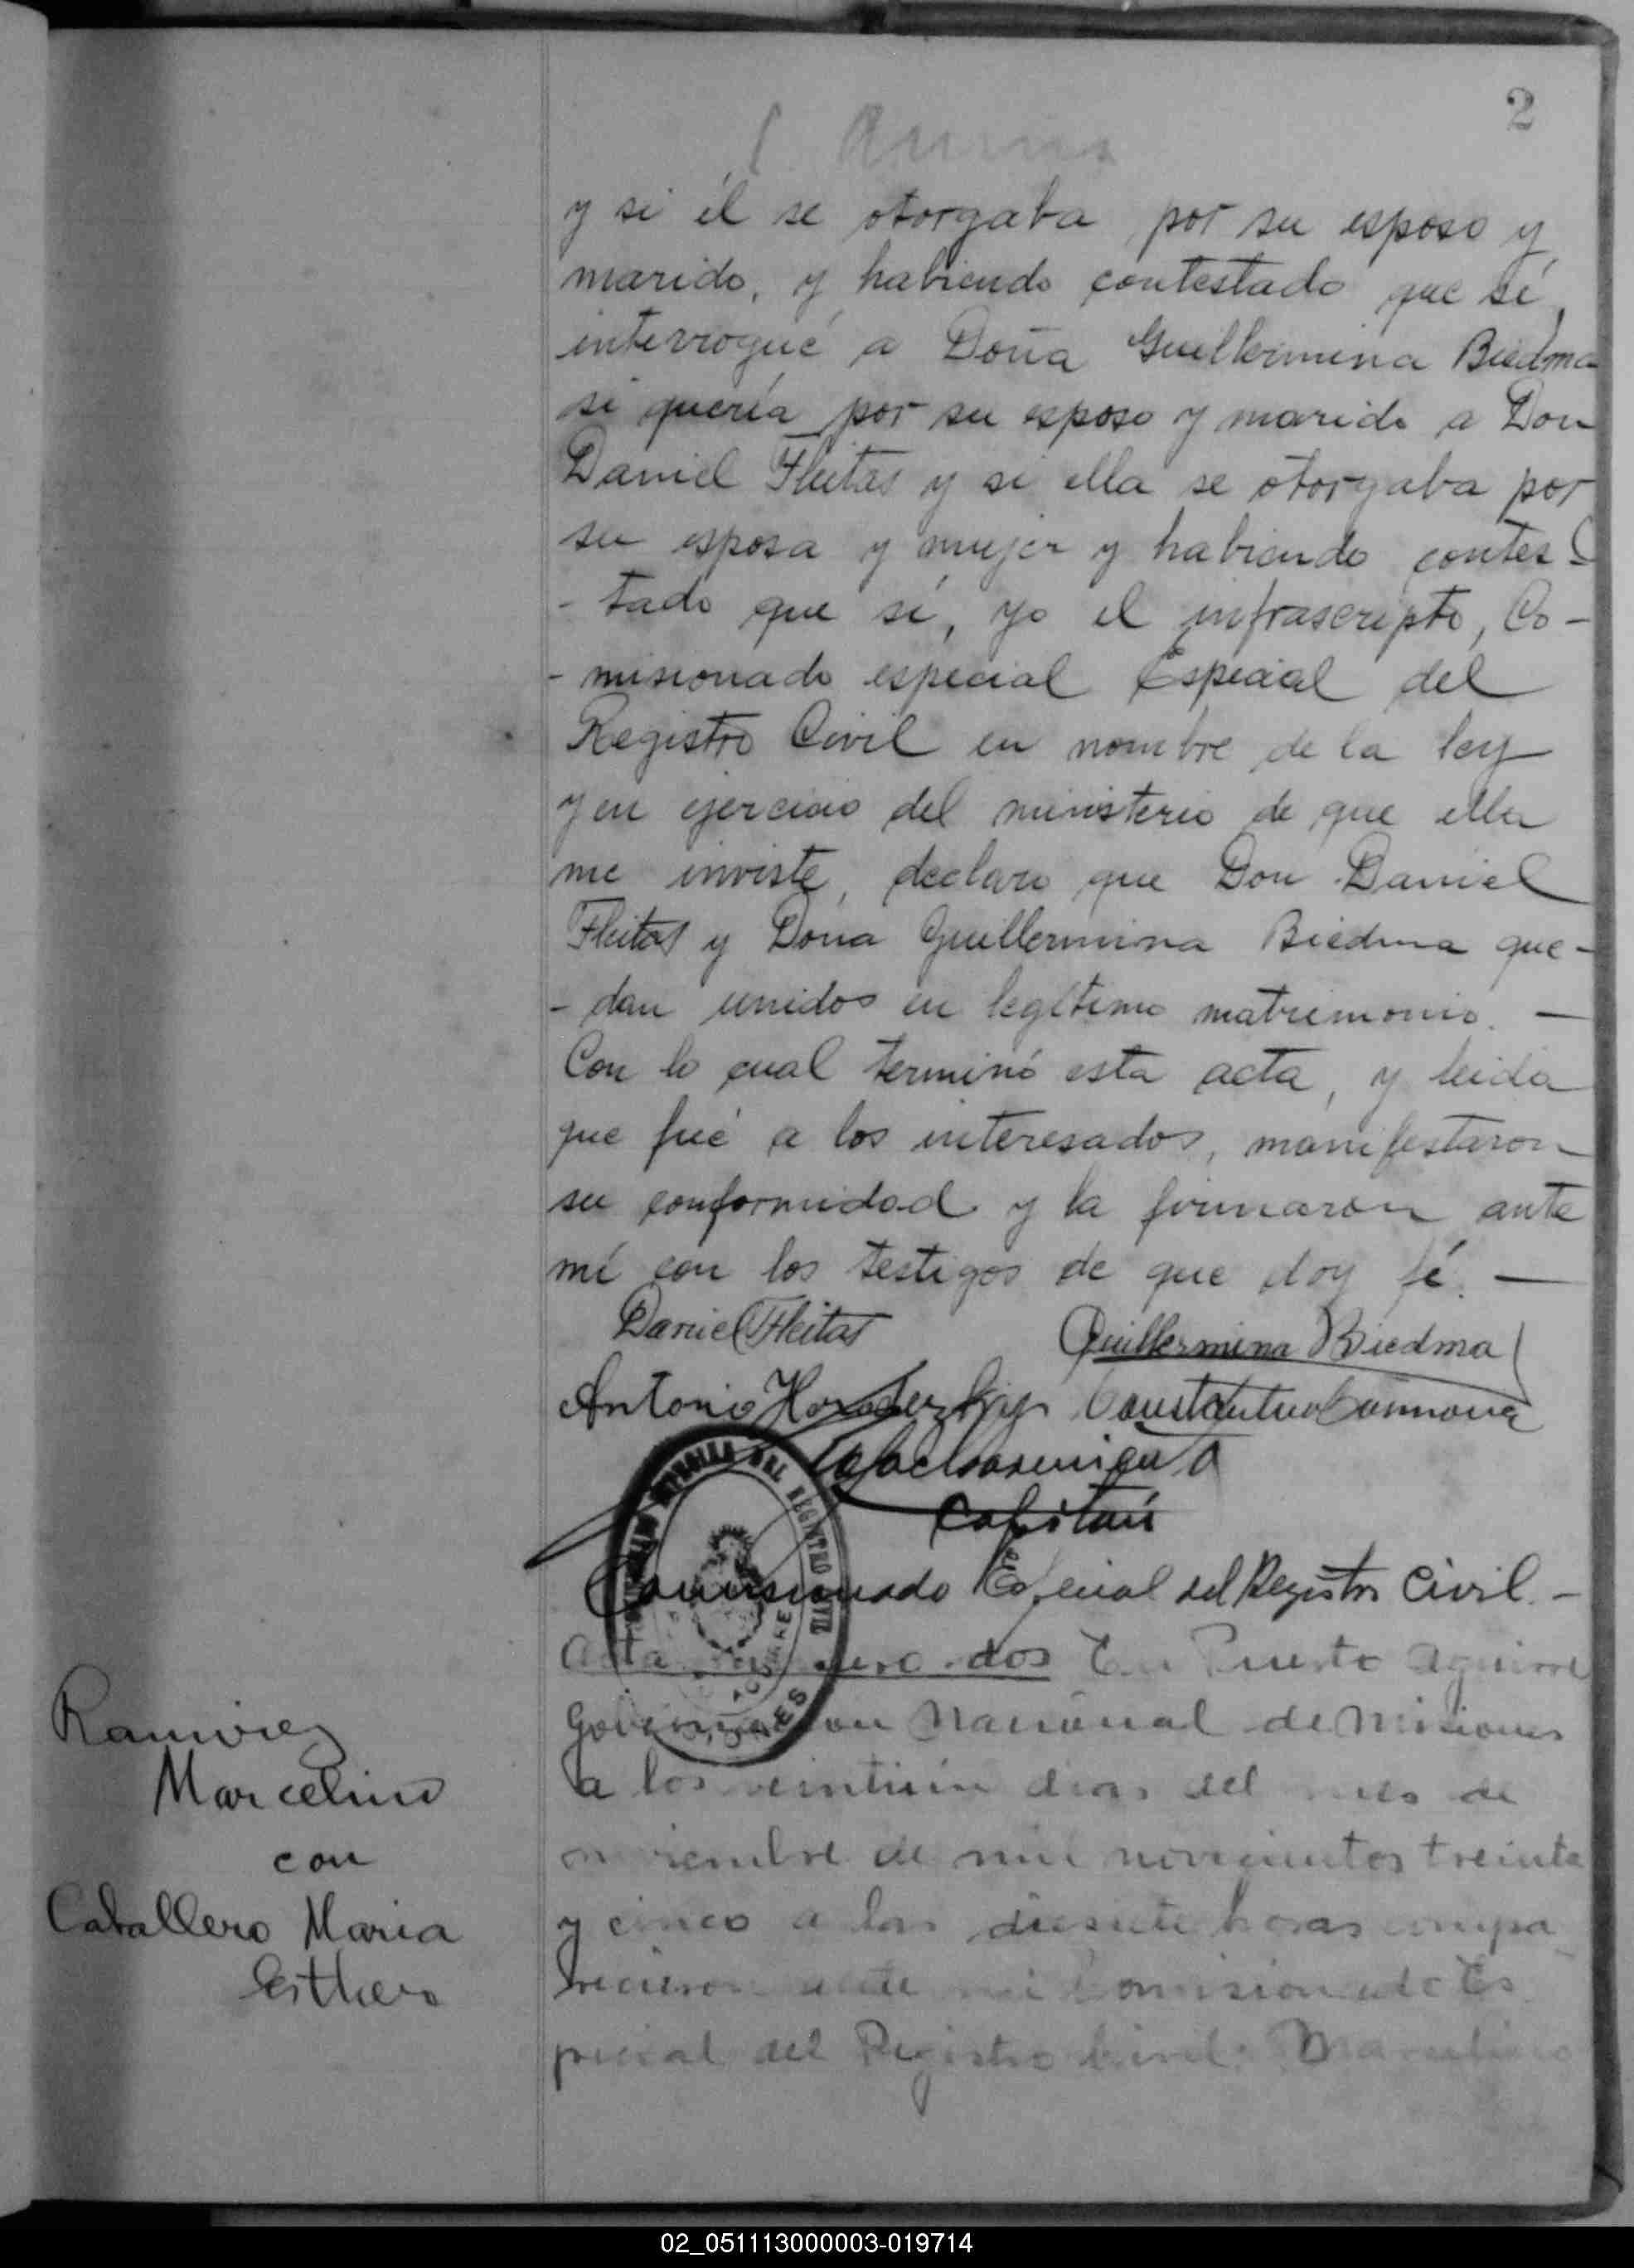 2
y si él se otorgaba por su esposo y
marido, y habiendo contestado que sí,
interrogué a Doña Guillermina Biedma
si quería por su esposo y marido a Don
Daniel Fleitas y si ella se otorgaba por
su esposa y mujer y habiendo contes-
- tado que sí, yo el infrascripto, Co-
- misionado especial Especial del
Registro Civil en nombre de la ley
y en ejercicio del ministerio de que ella
me inviste, declaro que Don Daniel
Fleitas y Doña Guillermina Biedma que-
- dan unidos en legítimo matrimonio. —
Con lo cual terminó esta acta, y leida
que fué a los interesados, manifestaron
su conformidad y la firmaron ante
mí con los testigos de que doy fé. —
Daniel Fleitas
Guillermina Biedma
Antonio
Capitán
Comisionado Especial del Registro Civil. —
Acta número dos En Puerto Aguirre
Gobernación Nacional de Misiones
a los veintiún dias del mes de
noviembre de mil novecientos treinta
y cinco a las diesisiete horas compa
recieron ante mi Comisionado Es
pecial del Registro Civil: Marcelino
Ramirez
Marcelino
con
Caballero Maria
Esther
02_051113000003-019714